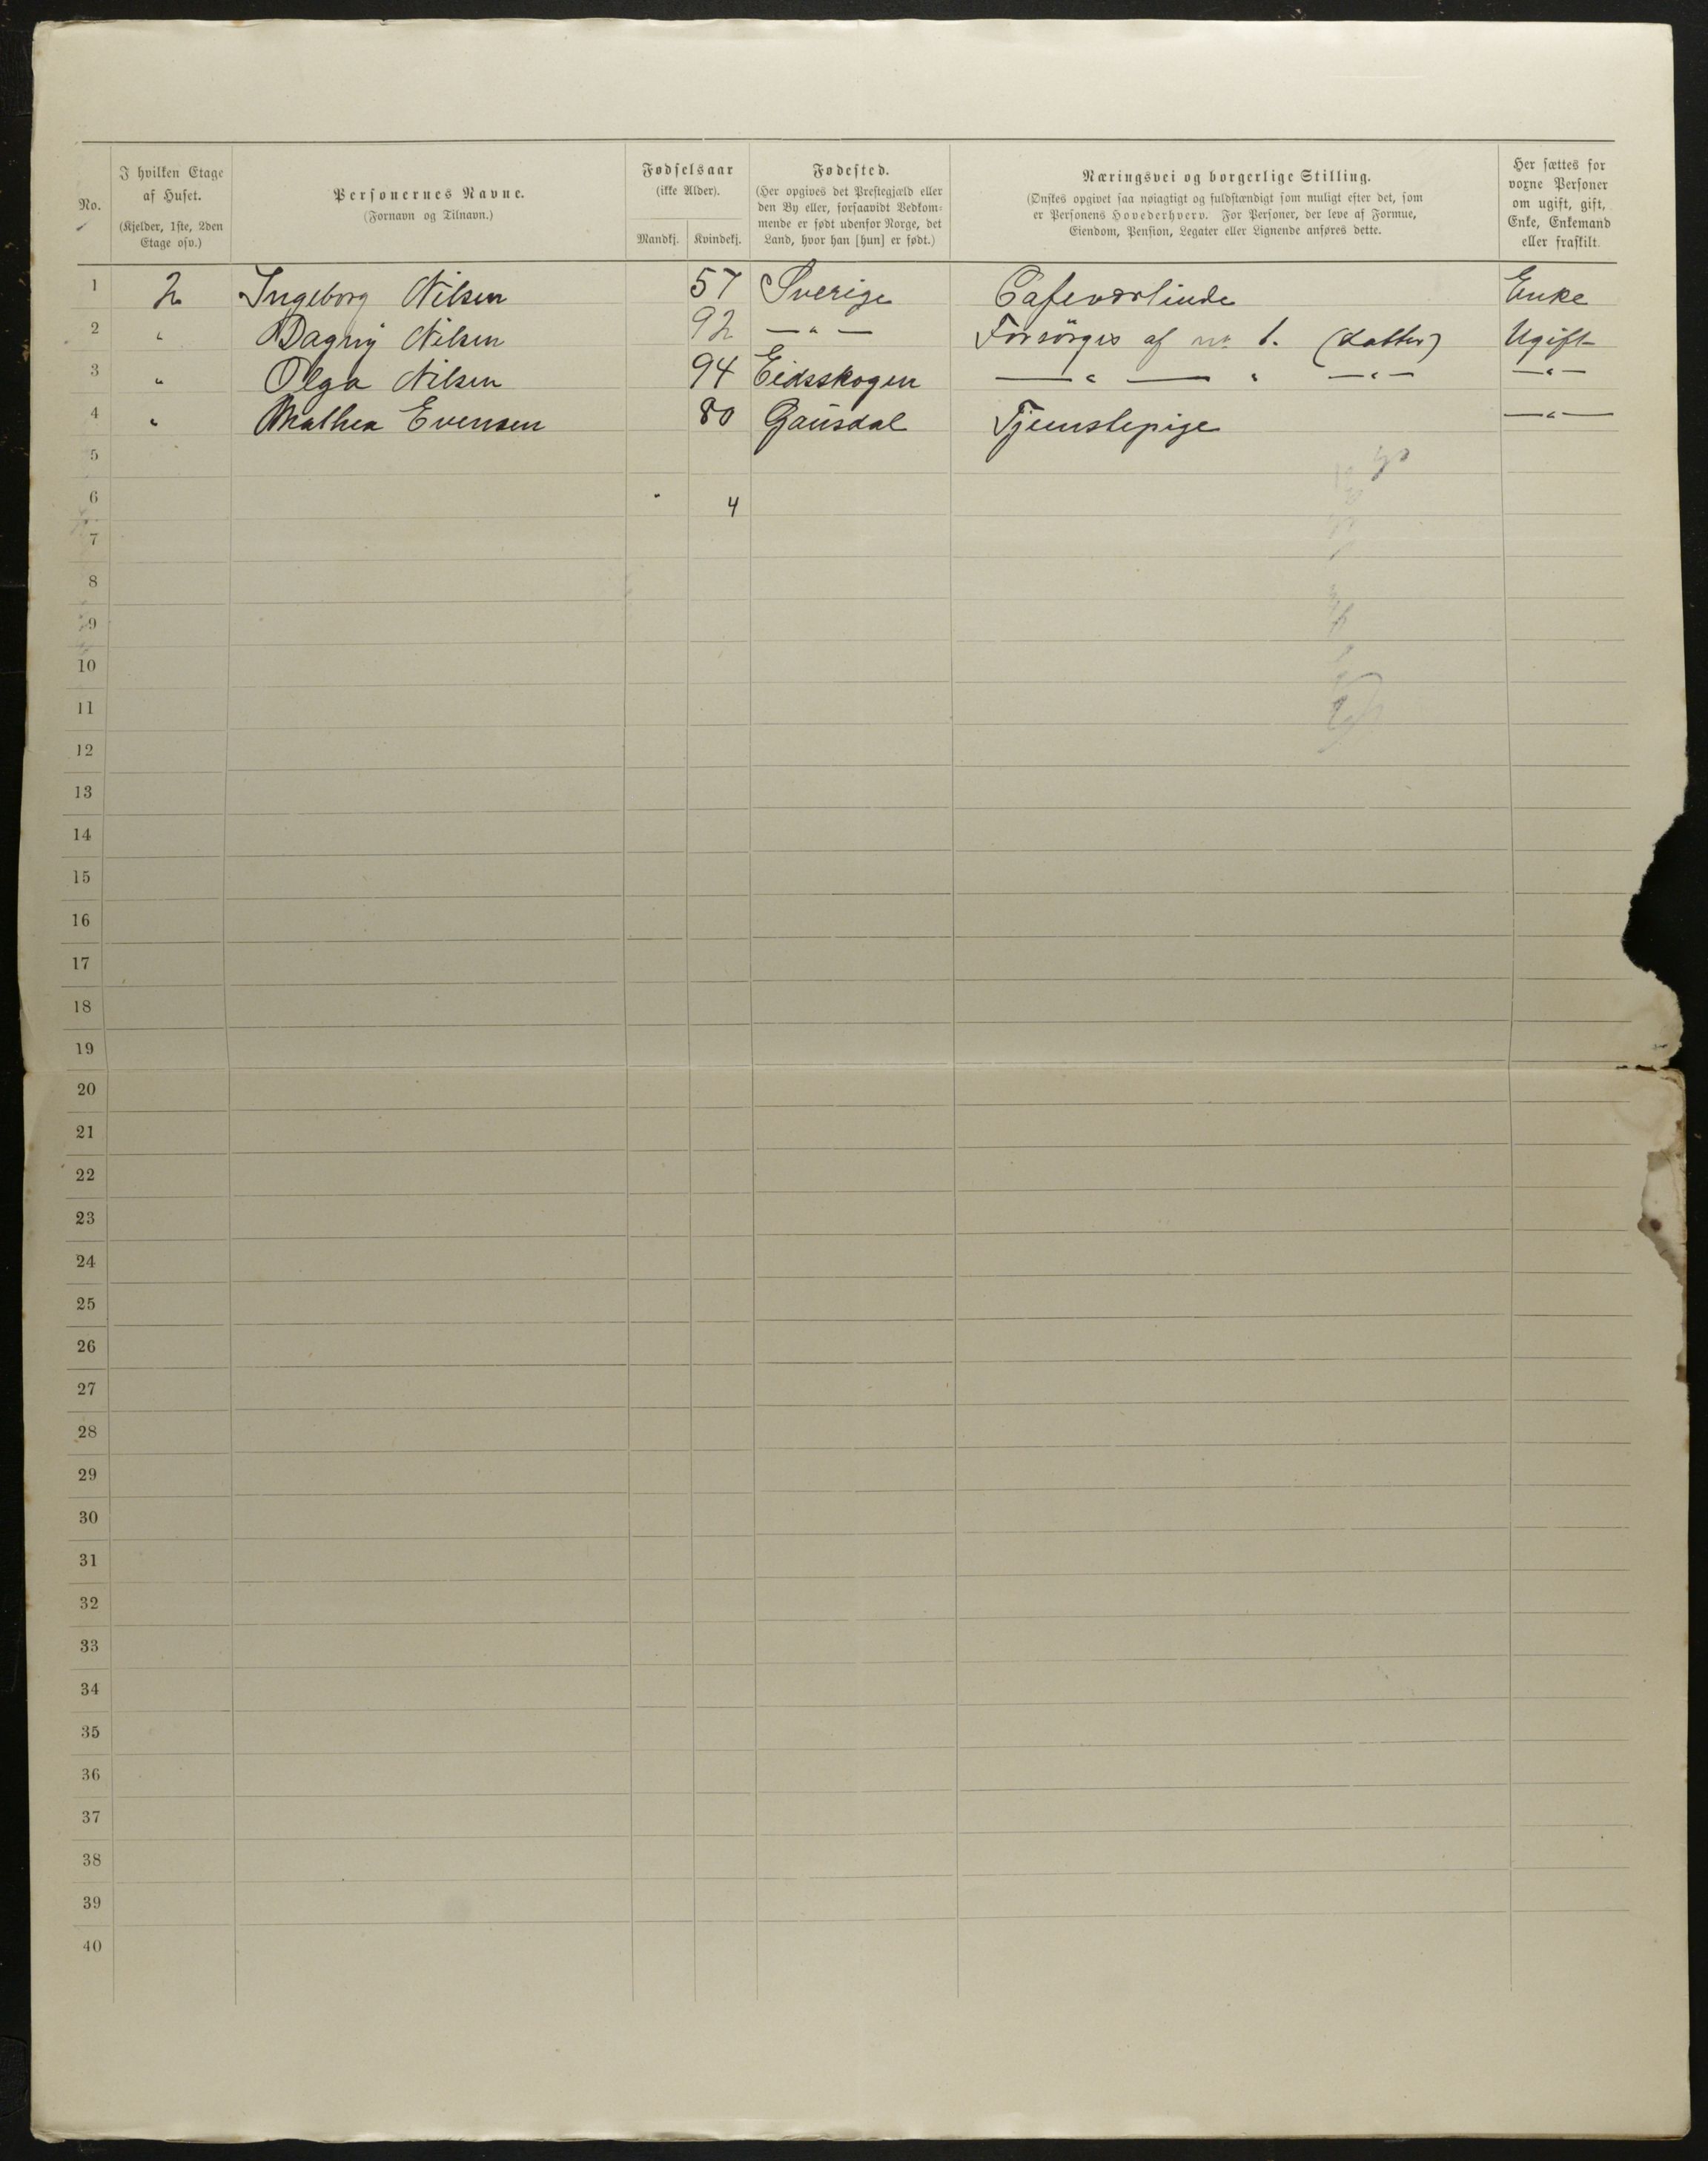 No.
I hvilken Etage
af Huset.
(Kjelder, 1ste, 2den
Etage osv.)
Personernes Navne.
(Fornavn og Tilnavn.)
Fødselsaar
(ikke Alder).
Mandkj. Kvindekj.
Fødested.
(Her opgives det Præstegjæld eller
den By eller, forsaavidt Vedkom-
mende er født udenfor Norge, det
Land, hvor han [hun] er født.)
Næringsvei og borgerlige Stilling.
(Ønskes opgivet saa nøiagtigt og fuldstændigt som muligt efter det, som
er Personens Hovederhverv. For Personer, der leve af Formue,
Eiendom, Pension, Legater eller Lignende anføres dette.
Her sættes for
voxne Personer
om ugift, gift,
Enke, Enkemand
eller fraskilt.
1 2 Ingeborg Nilsen 57 Sverige Cafeværtinde Enke
2 " Dagny Nilsen 92 — " — Forsörges af no 1. (Datter) Ugift
3 " Olga Nilsen 94 Eidsskogen — " — " — " — — " —
4 " Mathea Evensen 80 Gausdal Tjenstepige — " —
5
6 4
7
8
9
10
11
12
13
14
15
16
17
18
19
20
21
22
23
24
25
26
27
28
29
30
31
32
33
34
35
36
37
38
39
40